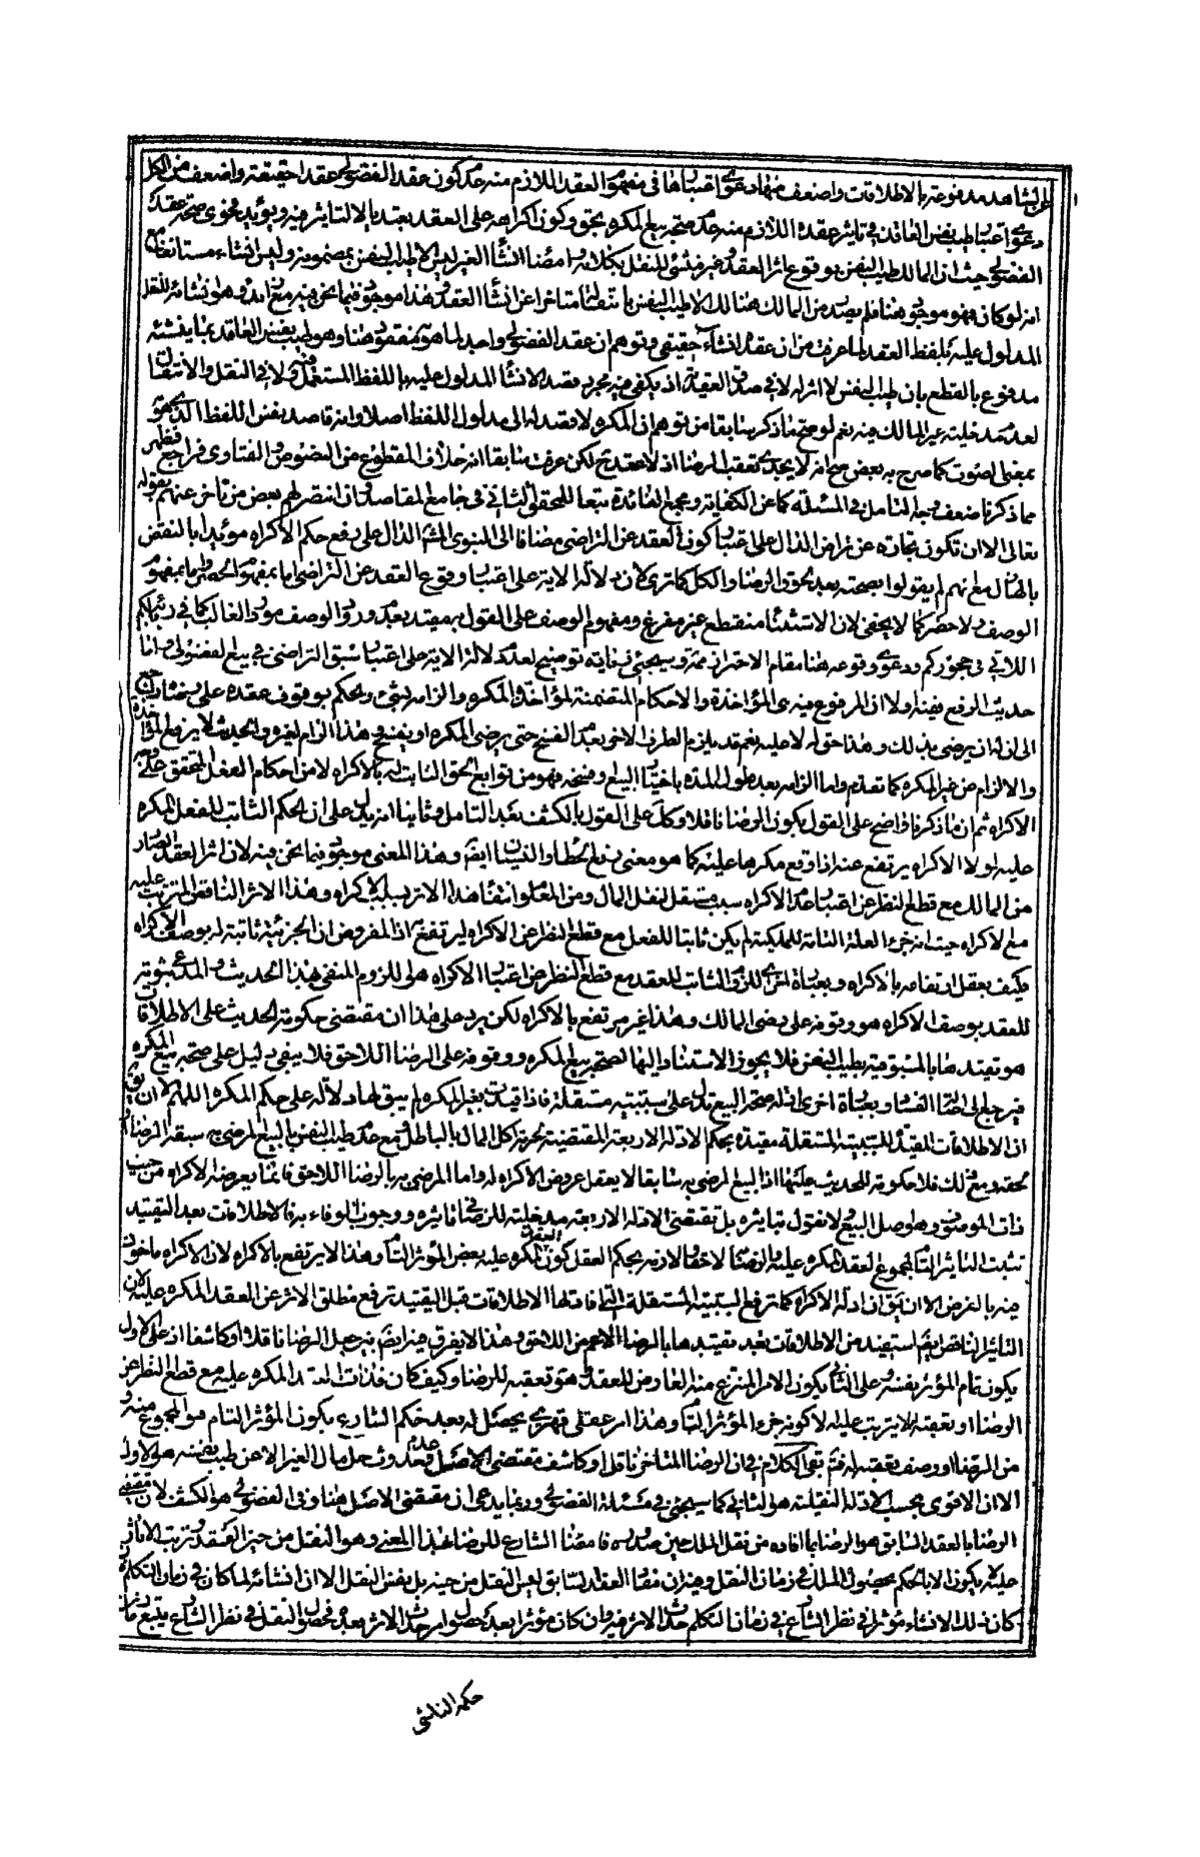 عن الشاهد مدفوعة بالاطلاقات واضعف منها دعوى اعتبارها فى مفهوم العقد اللازم منه عدم كون عقد الفضولى عقدا حقيقة واضعف من الكل
دعوى اعتبار طيب نفس العاقد فى تاثير عقده اللازم منه عدم صحة بيع المكره بحق وكون اكراهه على العقد تعبديا لا لتاثير فيه ويؤيده فحوى صحة عقد
الفضولى حيث ان المالك طيب النفس بوقوع اثر العقد وغير منشئ للنقل بكلامه وامضاء انشاء الغير ليس الا طيب النفس بمضمونه وليس انشاء مستانفا مع
انه لو كان فهو موجود هنا فلم يصدر من المالك هنالك الا طيب النفس بانتقاله متاخرا عن انشاء العقد وهذا موجود فيما نحن فيه مع زائد وهو انشائه للنقل
المدلول عليه بلفظ العقد لما عرفت من ان عقده انشاء حقيقى وتوهم ان عقد الفضولى واجد لما هو مفقود هنا وهو طيب نفس العاقد بما ينشئه
مدفوع بالقطع بان طيب النفس لا اثر له لا فى صدق العقدية اذ يكفى فيه مجرد قصد الانشاء المدلول عليه باللفظ المستعمل فيه ولا فى النقل والانتقال
لعدم مدخلية غير المالك فيه نعم لو صح ما ذكر سابقا من توهم ان المكره لا قصد له الى مدلول اللفظ اصلا وانه قاصد نفس اللفظ الذى هو
بمعنى الصوت كما صرح به بعض صح انه لا يجدى تعقب الرضا اذ لا عقد ح لكن عرفت سابقا انه خلاف المقطوع من النصوص والفتاوى فراجع فظهر
مما ذكرنا ضعف وجه التامل فى المسئلة كما عن الكفاية ومجمع الفائدة تبعا للمحقق الثانى فى جامع المقاصد وان انتصر لهم بعض من تاخر عنهم بقوله
تعالى الا ان تكون تجارة عن تراض الدال على اعتبار كون العقد عن التراضى مضافا الى النبوى المشهور الدال على رفع حكم الاكراه مؤيدا بالنقض
بالهازل مع انهم لم يقولوا بصحته بعد لحوق الرضا والكل كما ترى لان دلالة الاية على اعتبار وقوع العقد عن التراضى اما بمفهوم الحصر واما بمفهوم
الوصف ولا حصر كما لا يخفى لان الاستثناء منقطع غير مفرغ ومفهوم الوصف على القول به مقيد بعدم ورود الوصف مورد الغالب كما فى ربائبكم
اللاتى فى حجوركم ودعوى وقوعه هنا مقام الاحتراز ممنوعة وسيجئى زيادة توضيح لعدم دلالة الاية على اعتبار سبق التراضى فى بيع الفضولى واما
حديث الرفع ففيه اولا ان المرفوع فيه هى المؤاخذة والاحكام المتضمنة لمؤاخذة المكره والزامه بشئ والحكم بوقوف عقده على رضاه راجع
الى ان له ان يرضى بذلك وهذا حق له لا عليه نعم قد يلزم الطرف الاخر بعدم الفسخ حتى يرضى المكره او يفسخ وهذا الزام لغيره والحديث لا يرفع المؤاخذة
والالزام عن غير المكره كما تقدم واما الزامه بعد طول المدة باختيار البيع وفسخه فهو من توابع الحق الثابت له بالاكراه لا من احكام الفعل المتحقق على وجه
الاكراه ثم ان ما ذكرنا واضح على القول بكون الرضا ناقلا وكذلك على القول بالكشف بعد التامل وثانيا انه يدل على ان الحكم الثابت للفعل المكره
عليه لولا الاكراه يرتفع عنه اذا وقع مكرها عليه كما هو معنى رفع الخطاء والنسيان ايضا وهذا المعنى موجود فيما نحن فيه لان اثر العقد الصادر
من المالك مع قطع النظر عن اعتبار عدم الاكراه سبب مستقل لنقل المال ومن المعلوم انتفاء هذا الاثر بسبب الاكراه وهذا الاثر الناقص المترتب عليه
مع الاكراه حيث انه جزء العلة التامة للملكية لم يكن ثابتا للفعل مع قطع النظر عن الاكراه ليرتفع به اذ المفروض ان الجزئية ثابتة له بوصف الاكراه
فكيف يعقل ارتفاعه بالاكراه وبعبارة اخرى اللزوم الثابت للعقد مع قطع النظر عن اعتبار الاكراه هو اللزوم المنفى بهذا الحديث والمدعى ثبوته
للعقد بوصف الاكراه هو وقوفه على رضى المالك وهذا غير مرتفع بالاكراه لكن يرد على هذا ان مقتضى حكومة الحديث على الاطلاقات
هو تقييدها بالمسبوقية بطيب النفس فلا يجوز الاستناد اليها لصحة بيع المكره ووقوفه على الرضا اللاحق فلا يبقى دليل على صحة بيع المكره
فيرجع الى اصالة الفساد وبعبارة اخرى ادلة صحة البيع تدل على سببية مستقلة فاذا قيدت بغير المكره لم يبق لها دلالة على حكم المكره اللهم الا ان يقال
ان الاطلاقات المفيدة للسببية المستقلة مقيدة بحكم الادلة الاربعة المقتضية لحرمة اكل المال بالباطل ومع عدم طيب النفس بالبيع المرضى به سبقه الرضا او
لحقه ومع ذلك فلا حكومة للحديث عليها اذ البيع المرضى به سابقا لا يعقل عروض الاكراه له واما المرضى به بالرضا اللاحق فانما يعرضه الاكراه من حيث
ذات الموصوف وهو اصل البيع ولا نقول بتاثيره بل مقتضى الادلة الاربعة مدخلية للرضا فى تاثيره ووجوب الوفاء به فالاطلاقات بعد التقييد
تثبت التاثير التام لمجموع العقد المكره عليه والرضا به لاحقا ولازمه بحكم العقل كون العقد المكره عليه بعض المؤثر التام وهذا لا يرتفع بالاكراه لان الاكراه ماخوذ
فيه بالفرض الا ان يقال ان ادلة الاكراه كما ترفع السببية المستقلة التى افادتها الاطلاقات قبل التقييد ترفع مطلق الاثر عن العقد المكره عليه لان
التاثير الناقص ايضا استفيد من الاطلاقات بعد تقييدها بالرضا الاعم من اللاحق وهذا لا يفرق فيه ايضا بين جعل الرضا ناقلا او كاشفا اذ على الاول
يكون تمام المؤثر نفسه وعلى الثانى يكون الامر المنتزع منه العارض للعقد وهو تعقبه للرضا وكيف كان فذات العقد المكره عليه مع قطع النظر عن
الرضا او تعقبه له لا يترتب عليه الا كونه جزء المؤثر التام وهذا امر عقلى قهرى يحصل له بعد حكم الشارع بكون المؤثر التام هو المجموع منه و
من الرضا او وصف تعقبه له فتم بقى الكلام فى ان الرضا المتاخر ناقل او كاشف مقتضى الاصل وعدم حدوث حل مال الغير الا عن طيب نفسه هو الاول
الا ان الاقوى بحسب الادلة النقلية هو الثانى كما سيجئى فى مسئلة الفضولى وربما يدعى ان مقتضى الاصل هنا وفى الفضولى هو الكشف لان مقتضى
الرضا بالعقد السابق هو الرضا بما افاده من نقل الملك حين صدوره فامضاء الشارع للرضا بهذا المعنى وهو النقل من حين العقد وترتب الاثار
عليه لا يكون الا بالحكم بحصول الملك فى زمان النقل وفيه ان مفاد العقد السابق ليس النقل من حينه بل نفس النقل الا ان انشائه لما كان فى زمان التكلم فان
كان ذلك الانشاء مؤثرا فى نظر الشارع فى زمان التكلم حدث الاثر فيه وان كان مؤثرا بعد حصول امر حدث الاثر بعده فحصول النقل فى نظر الشارع يتبع زمان
حكمه الناشى